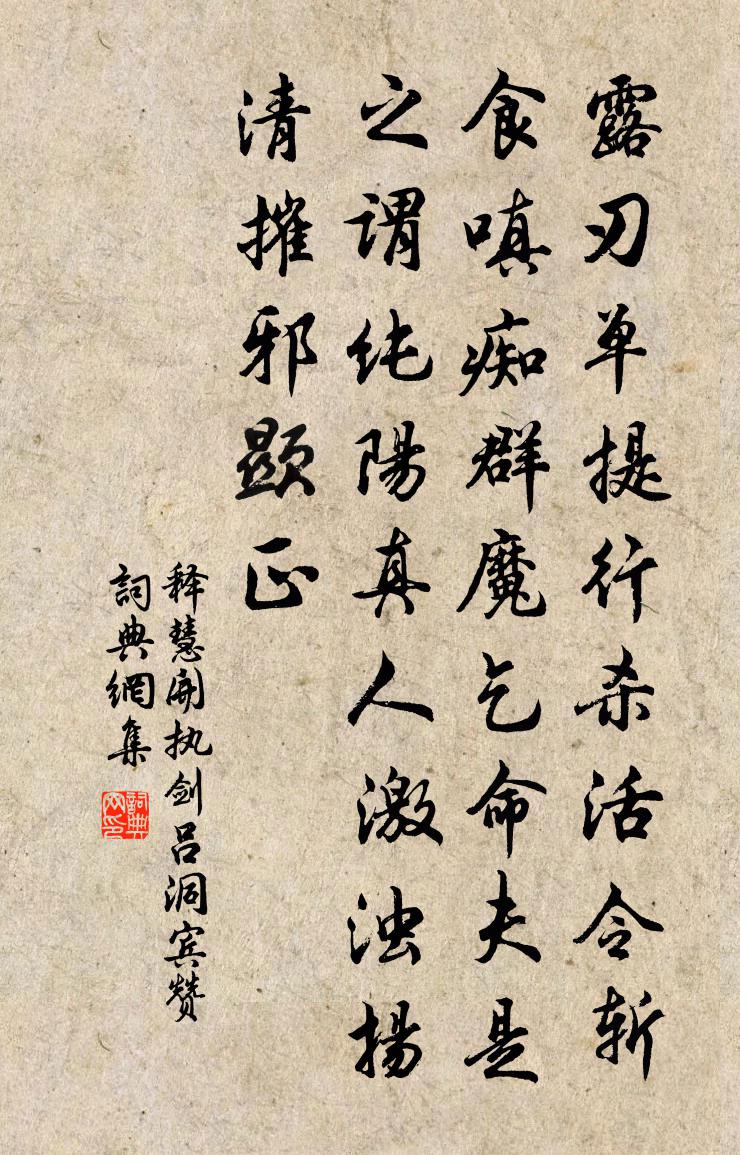 露刃单提行杀活令斩
食嗔痴群魔乞命夫是
之谓纯陽真人激浊揚
清摧邪顕正
释慧開执剑吕洞宾赞
詞典網集
詞典网印